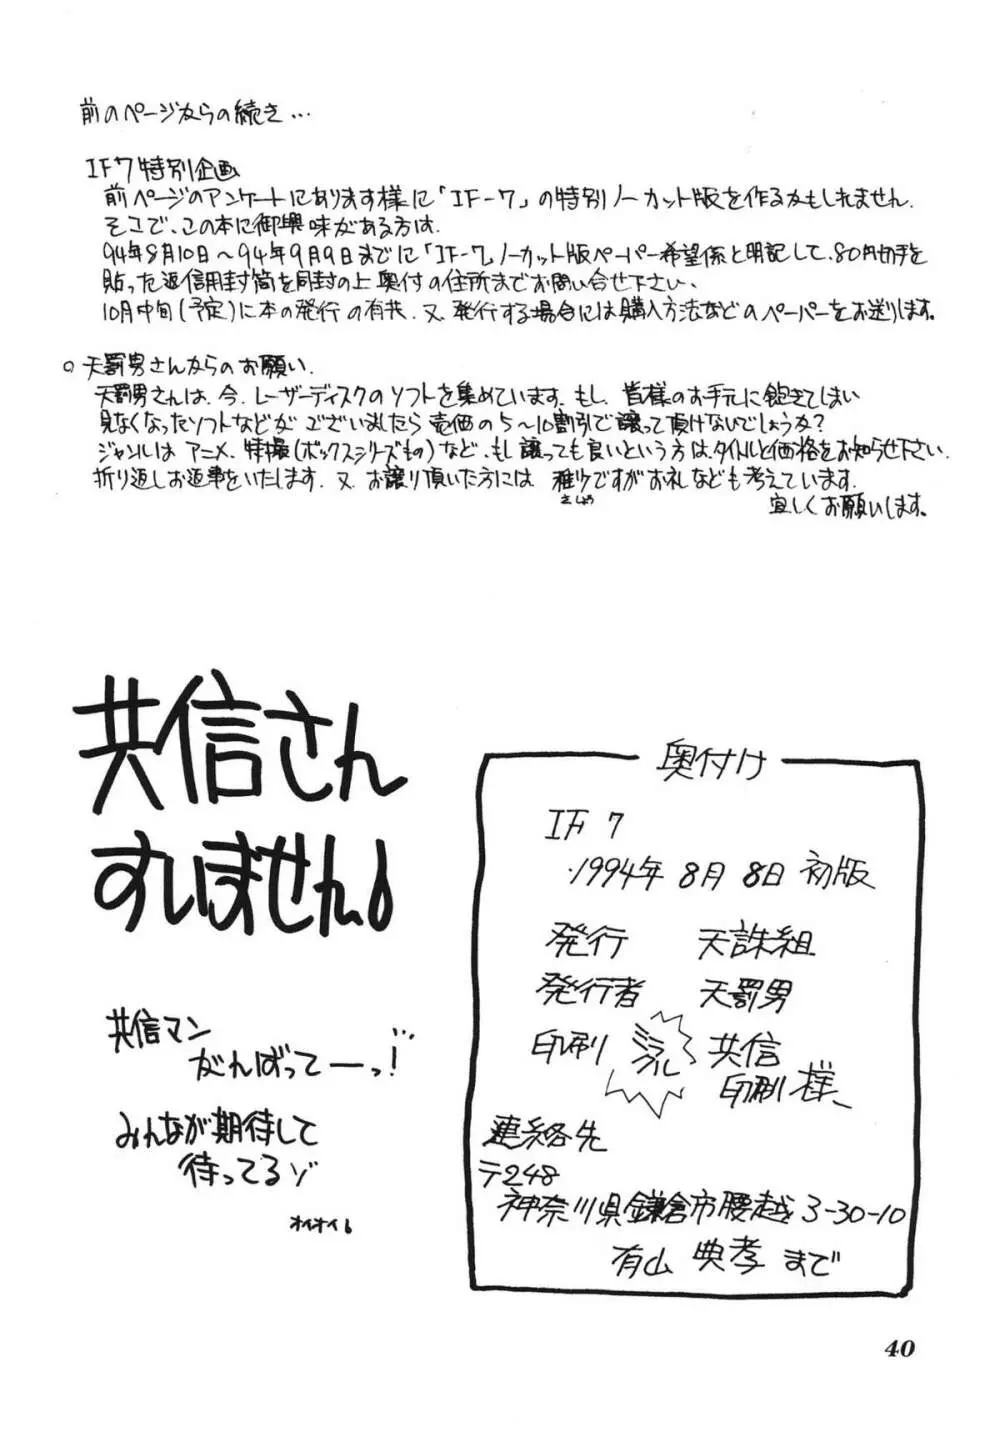 前のページからの続き…
IF7特別企画
前ページのアンケートにあります様に「IF-7」の特別ノーカット版を作るかもしれません.
そこで、この本に御興味がある方は.
94年8月10日～94年9月9日までに「IF-7」ノーカット版ペーパー希望係と明記して、80円切手を
貼った返信用封筒を同封の上奥付の住所までお問い合せ下さい、
10月中旬(予定)に本の発行の有無、又、発行する場合には購入方法などのペーパーをお送りします。
○天罰男さんからのお願い.
天罰男さんは、今、レーザーディスクのソフトを集めています。もし、皆様のお手元に飽きてしまい
見なくなったソフトなどがございましたら売価の5～10割引で譲って頂けないでしょうか?
ジャンルはアニメ、特撮(ボックスシリーズもの)など、もし譲っても良いという方はタイトルと価格をお知らせ下さい.
折り返しお返事をいたします.又、お譲り頂いた方には些少ですがお礼なども考えています.
さしょう
宜しくお願いします。
共信さん
すいません!
共信マン
がんばってーっ!
みんなが期待して
待ってるゾ
オイオイ!
奥付け
IF 7
.1994年8月8日 初版
発行 天誅組
発行者 天罰男
印刷 ミラクル 共信
印刷様、
連絡先
〒248
神奈川県鎌倉市腰越3-30-10
有山典孝まで
40